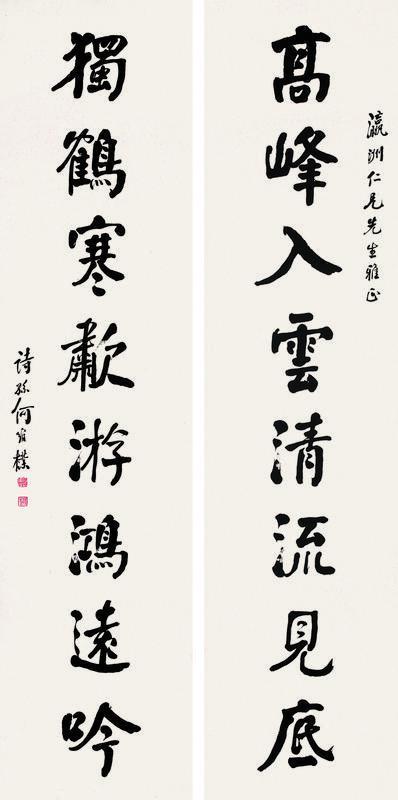 瀛洲仁兄先生雅正
高峰入雲清流見底
獨鶴寒歗游鴻遠吟
詩孫何維樸